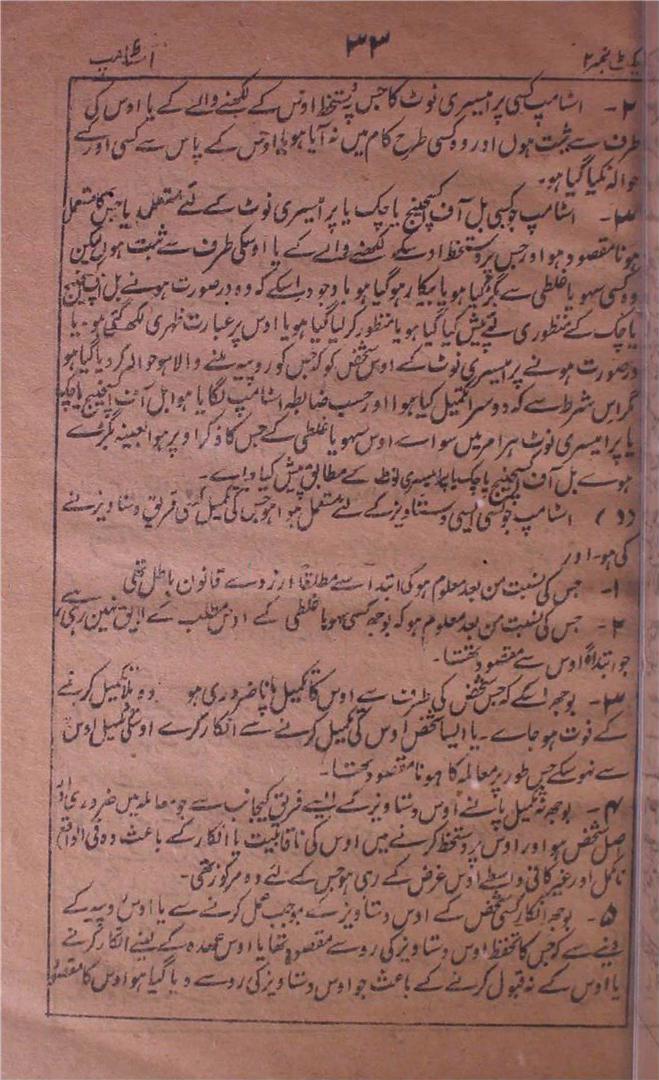 ایکٹ نمبر ۲ ۳۳ اسٹامپ
۲۔ اسٹامپ کسی پرامیسری نوٹ کا جس پر دستخط اوس کے لکھنے والے کے یا اوس کی
طرف سے ثبت ہوں اور وہ کسی طرح کام میں نہ آیا ہو یا اوس کے پاس سے کسی اور کے
حوالہ نکیا گیا ہو۔
۳۔ اسٹامپ جو کسی بل آف اکسچینج یا چک یا پرامیسری نوٹ کے لئے مستعملہ یا جس کا مستعمل
ہونا مقصود ہو اور جس پر دستخط اوسکے لکھنے والے کے یا اوسکی طرف سے ثبت ہوں لیکن
وہ کسی سہو یا غلطی سے بگڑ گیا ہو یا بیکار ہو گیا ہو باوجود اسکے کہ وہ در صورت ہونے بل آف اکسچینج
یا چک کے منظوری کے لئے پیش کیا گیا ہو یا منظور کر لیا گیا ہو یا اوس پر عبارت ظہری لکھ گئی ہو۔ یا
در صورت ہونے پرامیسری نوٹ کے اوس شخص کو کہ جس کو روپیہ ملنے والا ہو حوالہ کر دیا گیا ہو
مگر اس شرط سے کہ دوسرا تکمیل کیا ہوا اور حسب ضابطہ اسٹامپ لگایا ہوا بل آف اکسچینج یا چک
یا پرامیسری نوٹ ہر امر میں سواے اوس سہو یا غلطی کے جس کا ذکر اوپر ہوا بعینہ بگڑے
ہوے بل آف اکسچینج یا چک یا پرامیسری نوٹ کے مطابق پیش کیا جاے۔
(د) اسٹامپ جو کسی ایسی دستاویز کے لئے مستعمل ہوا ہو جس کی تکمیل کسی فریق دستاویز نے
کی ہو۔ اور
۱۔ جس کی نسبت من بعد معلوم ہو کہ ابتدا سے مطلقاً از روے قانون باطل تھی
۲۔ جس کی نسبت من بعد معلوم ہو کہ بوجہ کسی سہو یا غلطی کے اوس مطلب کے لایق نہیں رہی ہے
جو ابتداءً اوس سے مقصود تھا۔
۳۔ بوجہ اسکے کہ جس شخص کی طرف سے اوس کا تکمیل پانا ضروری ہو وہ بلا تکمیل کرنے
کے فوت ہو جاے۔ یا ایسا شخص اوس کی تکمیل کرنے سے انکار کرے اوسکی تکمیل اوس
سے نہو سکے جس طور پر معاملہ کا ہونا مقصود تھا۔
۴۔ بوجہ نہ تکمیل پانے اوس دستاویز کے ایسے فریق کیجانب سے جو معاملہ میں ضروری اور
اصل شخص ہو اور اوس پر دستخط کرنے میں اوس کی ناقابلیت یا انکار کے باعث وہ فی الواقع
نامکمل اور غیر کافی واسطے اوس غرض کے رہی ہو جس کے لئے وہ مرکوز تھی۔
۵۔ بوجہ انکار کسی شخص کے اوس دستاویز کے بموجب عمل کرنے سے یا اوس روپیہ کے
دینے سے کہ جس کا تحفظ اوس دستاویز کی رو سے مقصود تھا یا اوس عہدہ کے لینے انکار کرنے
یا اوس کے نہ قبول کرنے کے باعث جو اوس دستاویز کی رو سے دیا گیا ہو اوس کا مقصود